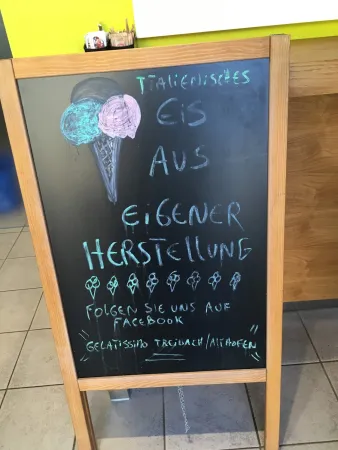 ITALIENISCHES
EIS
AUS
EIGENER
HERSTELLUNG
FOLGEN SIE UNS AUF
FACEBOOK
"GELATISSIMO TREIBACH/ALTHOFEN"